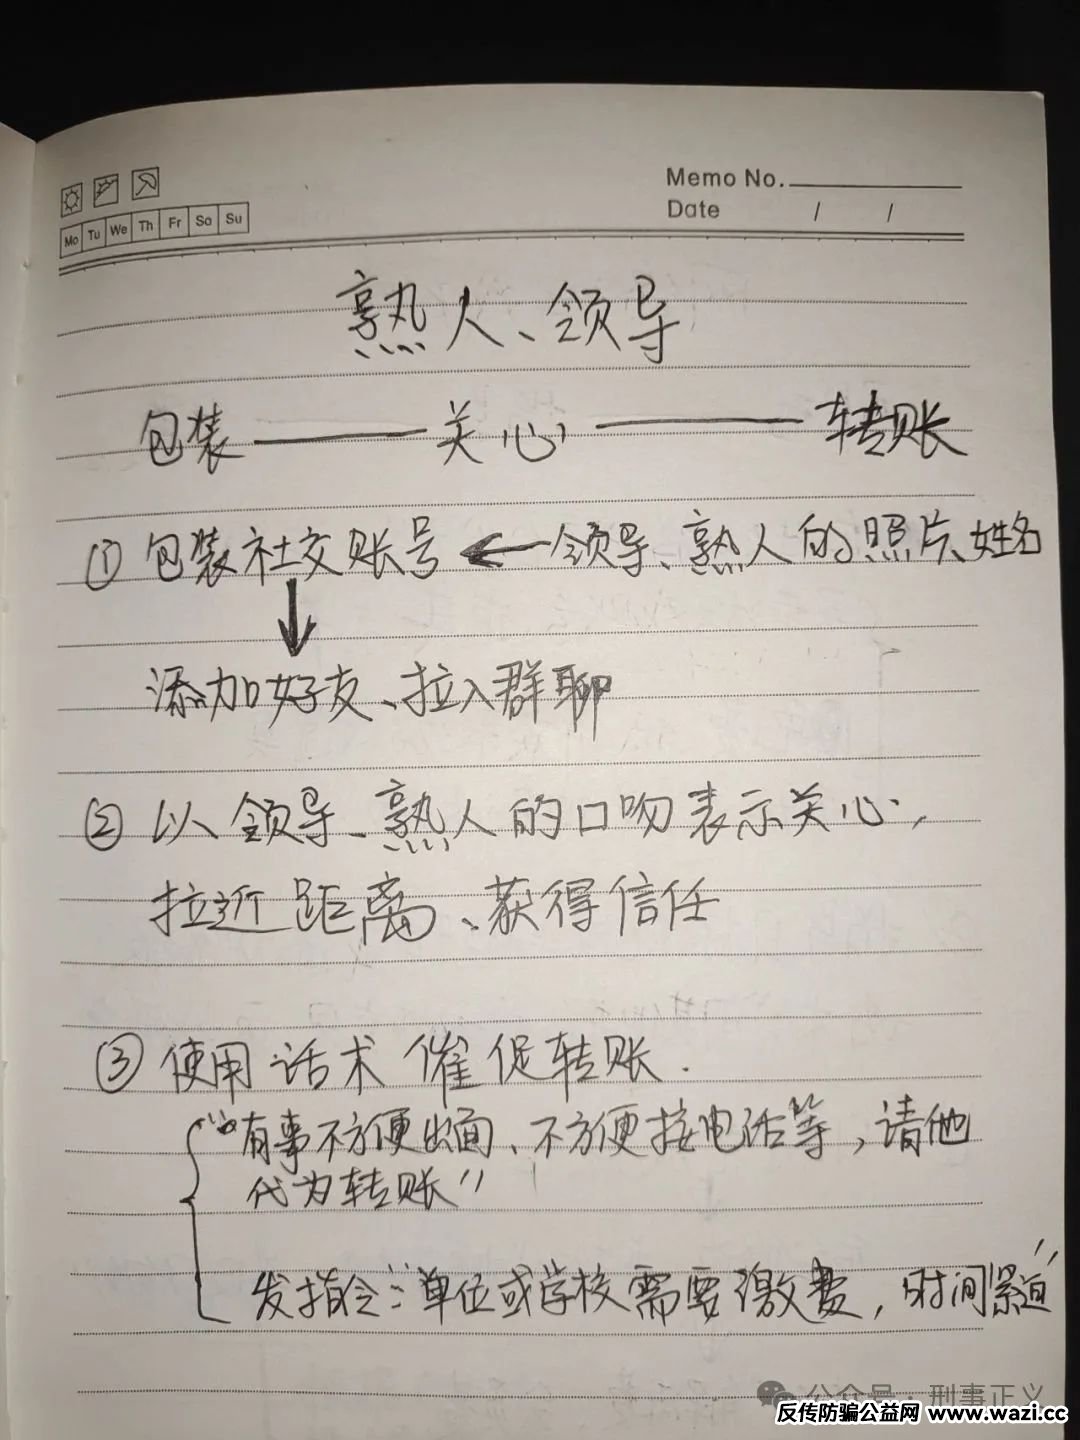 Memo No.
Date / /
Mo Tu We Th Fr Sa Su
熟人、领导
包装——关心——转账
① 包装社交账号 ← 领导、熟人的照片、姓名
↓
添加好友、拉入群聊
② 以领导、熟人的口吻表示关心,
拉近距离、获得信任
③ 使用话术 催促转账.
“有事不方便出面、不方便接电话等，请他
代为转账”
发指令:“单位或学校需要缴费，时间紧迫”
公众号·刑事正义
反传防骗公益网 www.wazi.cc